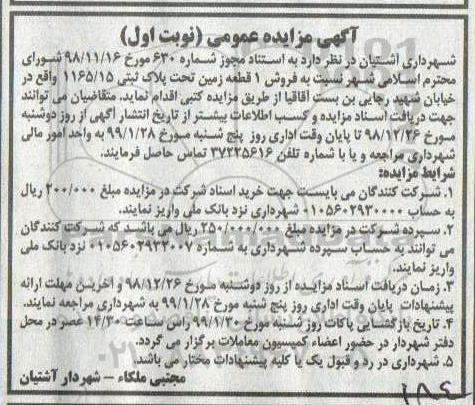 آگهی مزایده عمومی (نوبت اول)
شهرداری آشتیان در نظر دارد به استناد مجوز شماره ۶۳۰ مورخ ۹۸/۱۱/۱۶ شورای
محترم اسلامی شهر نسبت به فروش ۱ قطعه زمین تحت پلاک ثبتی ۱۱۶۵/۱۵ واقع در
خیابان شهید رجایی بن بست آقاقیا از طریق مزایده کتبی اقدام نماید. متقاضیان می توانند
جهت دریافت اسناد مزایده و کسب اطلاعات بیشتر از تاریخ انتشار آگهی از روز دوشنبه
مورخ ۹۸/۱۲/۲۶ تا پایان وقت اداری روز پنج شنبه مورخ ۹۹/۱/۲۸ به واحد امور مالی
شهرداری مراجعه و یا با شماره تلفن ۳۷۲۲۵۶۱۶ تماس حاصل فرمایند.
شرایط مزایده:
۱. شرکت کنندگان می بایست جهت خرید اسناد شرکت در مزایده مبلغ ۲۰۰/۰۰۰ ریال
به حساب ۰۱۰۵۶۰۲۹۳۰۰۰۰ شهرداری نزد بانک ملی واریز نمایند.
۲. سپرده شرکت در مزایده مبلغ ۲۵۰/۰۰۰/۰۰۰ ریال می باشد که شرکت کنندگان
می توانند به حساب سپرده شهرداری به شماره ۰۱۰۵۶۰۲۹۳۲۰۰۷ نزد بانک ملی
واریز نمایند.
۳. زمان دریافت اسناد مزایده از روز دوشنبه مورخ ۹۸/۱۲/۲۶ و آخرین مهلت ارائه
پیشنهادات پایان وقت اداری روز پنج شنبه مورخ ۹۹/۱/۲۸ به شهرداری مراجعه نمایند.
۴. تاریخ بازگشایی پاکات روز شنبه مورخ ۹۹/۱/۳۰ راس ساعت ۱۴/۳۰ عصر در محل
دفتر شهردار در حضور اعضاء کمیسیون معاملات برگزار می گردد.
۵. شهرداری در رد و قبول یک یا کلیه پیشنهادات مختار می باشد.
مجتبی ملکاء - شهردار آشتیان
۱۸۴